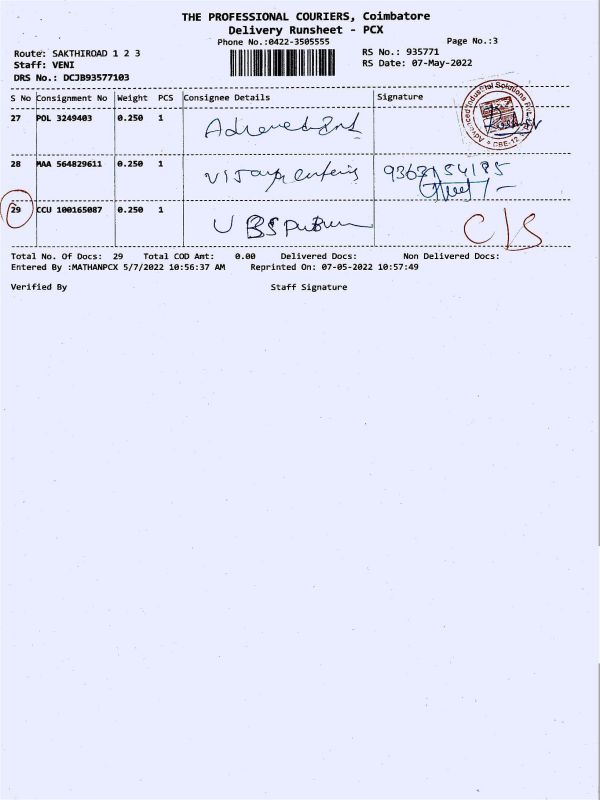 THE PROFESSIONAL COURIERS, Coimbatore
Delivery Runsheet - PCX
Phone No.:0422-3505555
Page No.:3
Route: SAKTHIROAD 1 2 3
RS No.: 935771
Staff: VENI
RS Date: 07-May-2022
DRS No.: DCJB93577103
S No Consignment No Weight PCS Consignee Details Signature
27 POL 3249403 0.250 1
28 MAA 564829611 0.250 1
29 CCU 100165087 0.250 1 UBS C/S
Total No. Of Docs: 29 Total COD Amt: 0.00 Delivered Docs: Non Delivered Docs:
Entered By :MATHANPCX 5/7/2022 10:56:37 AM Reprinted On: 07-05-2022 10:57:49
Verified By Staff Signature